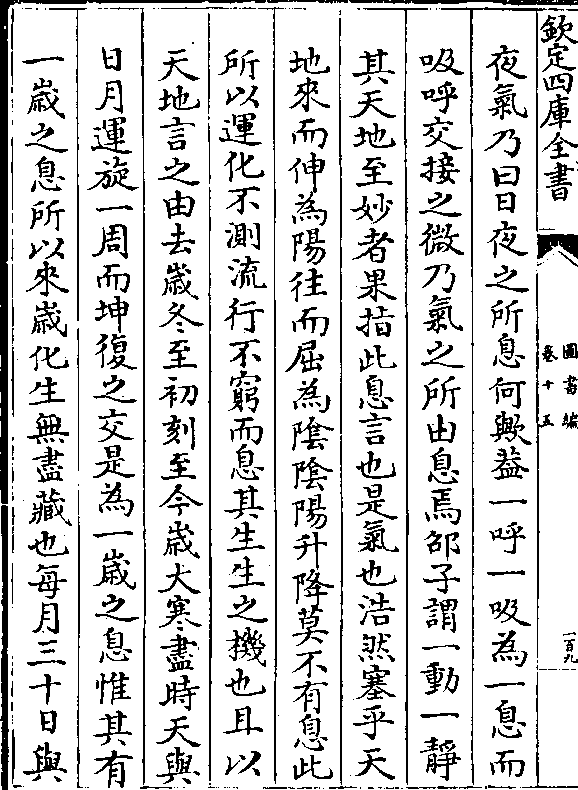 欽定四庫全書
圖書編
卷十五
一百九
夜氣乃曰日夜之所息何歟葢一呼一吸為一息而
吸呼交接之微乃氣之所由息焉邵子謂一動一靜
其天地至妙者果指此息言也是氣也浩然塞乎天
地來而伸為陽往而屈為隂隂陽升降莫不有息此
所以運化不測流行不窮而息其生生之機也且以
天地言之由去嵗冬至初刻至今嵗大寒盡時天與
日月運旋一周而坤復之交是為一嵗之息惟其有
一嵗之息所以來嵗化生無盡藏也每月三十日與